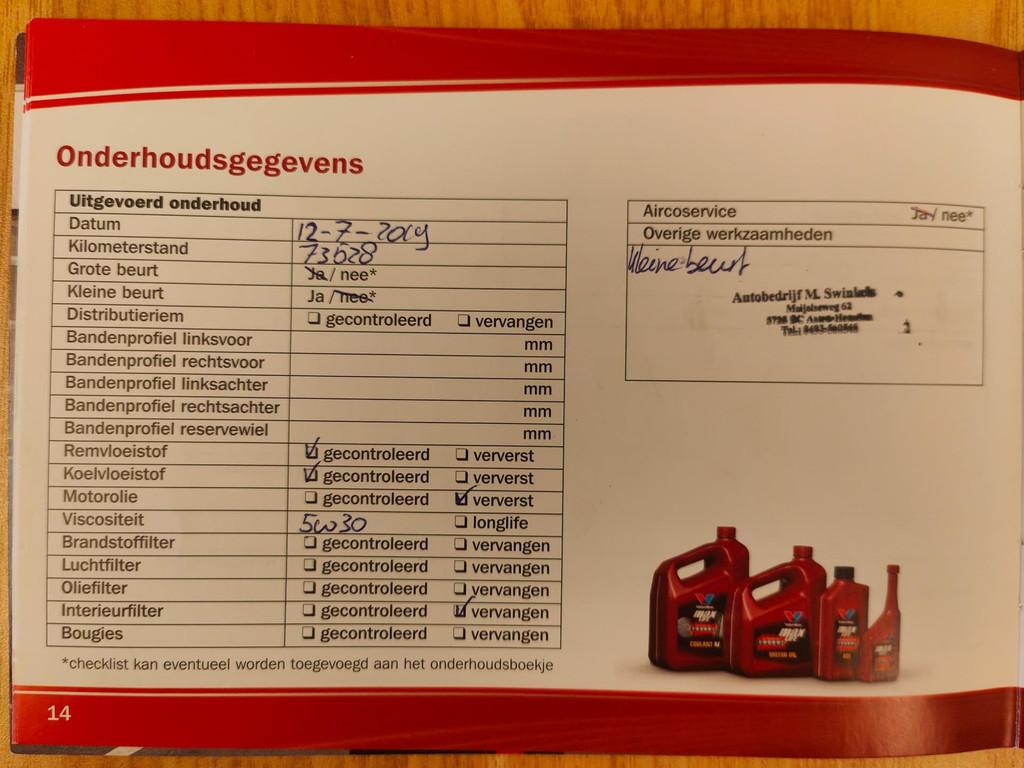 Onderhoudsgegevens
Uitgevoerd onderhoud
Datum 12-7-2019
Kilometerstand 73628
Grote beurt Ja / nee*
Kleine beurt Ja / nee*
Distributieriem ❏ gecontroleerd ❏ vervangen
Bandenprofiel linksvoor mm
Bandenprofiel rechtsvoor mm
Bandenprofiel linksachter mm
Bandenprofiel rechtsachter mm
Bandenprofiel reservewiel mm
Remvloeistof ☑ gecontroleerd ❏ ververst
Koelvloeistof ☑ gecontroleerd ❏ ververst
Motorolie ❏ gecontroleerd ☑ ververst
Viscositeit 5w30 ❏ longlife
Brandstoffilter ❏ gecontroleerd ❏ vervangen
Luchtfilter ❏ gecontroleerd ❏ vervangen
Oliefilter ❏ gecontroleerd ❏ vervangen
Interieurfilter ❏ gecontroleerd ☑ vervangen
Bougies ❏ gecontroleerd ❏ vervangen
*checklist kan eventueel worden toegevoegd aan het onderhoudsboekje
14
Aircoservice Ja / nee*
Overige werkzaamheden
Kleine beurt
Autobedrijf M. Swinkels
Meijelseweg 62
Tel.:
COOLANT
MOTOR OIL